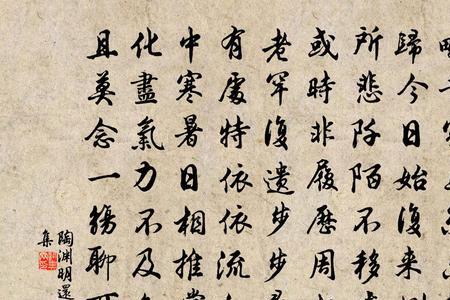 歸今日始復來
所悲阡陌不移
或時非履歷周
老罕復遺步步
有處特依依流
中寒暑日相推
化盡氣力不及
且莫念一觴聊
陶淵明還
集